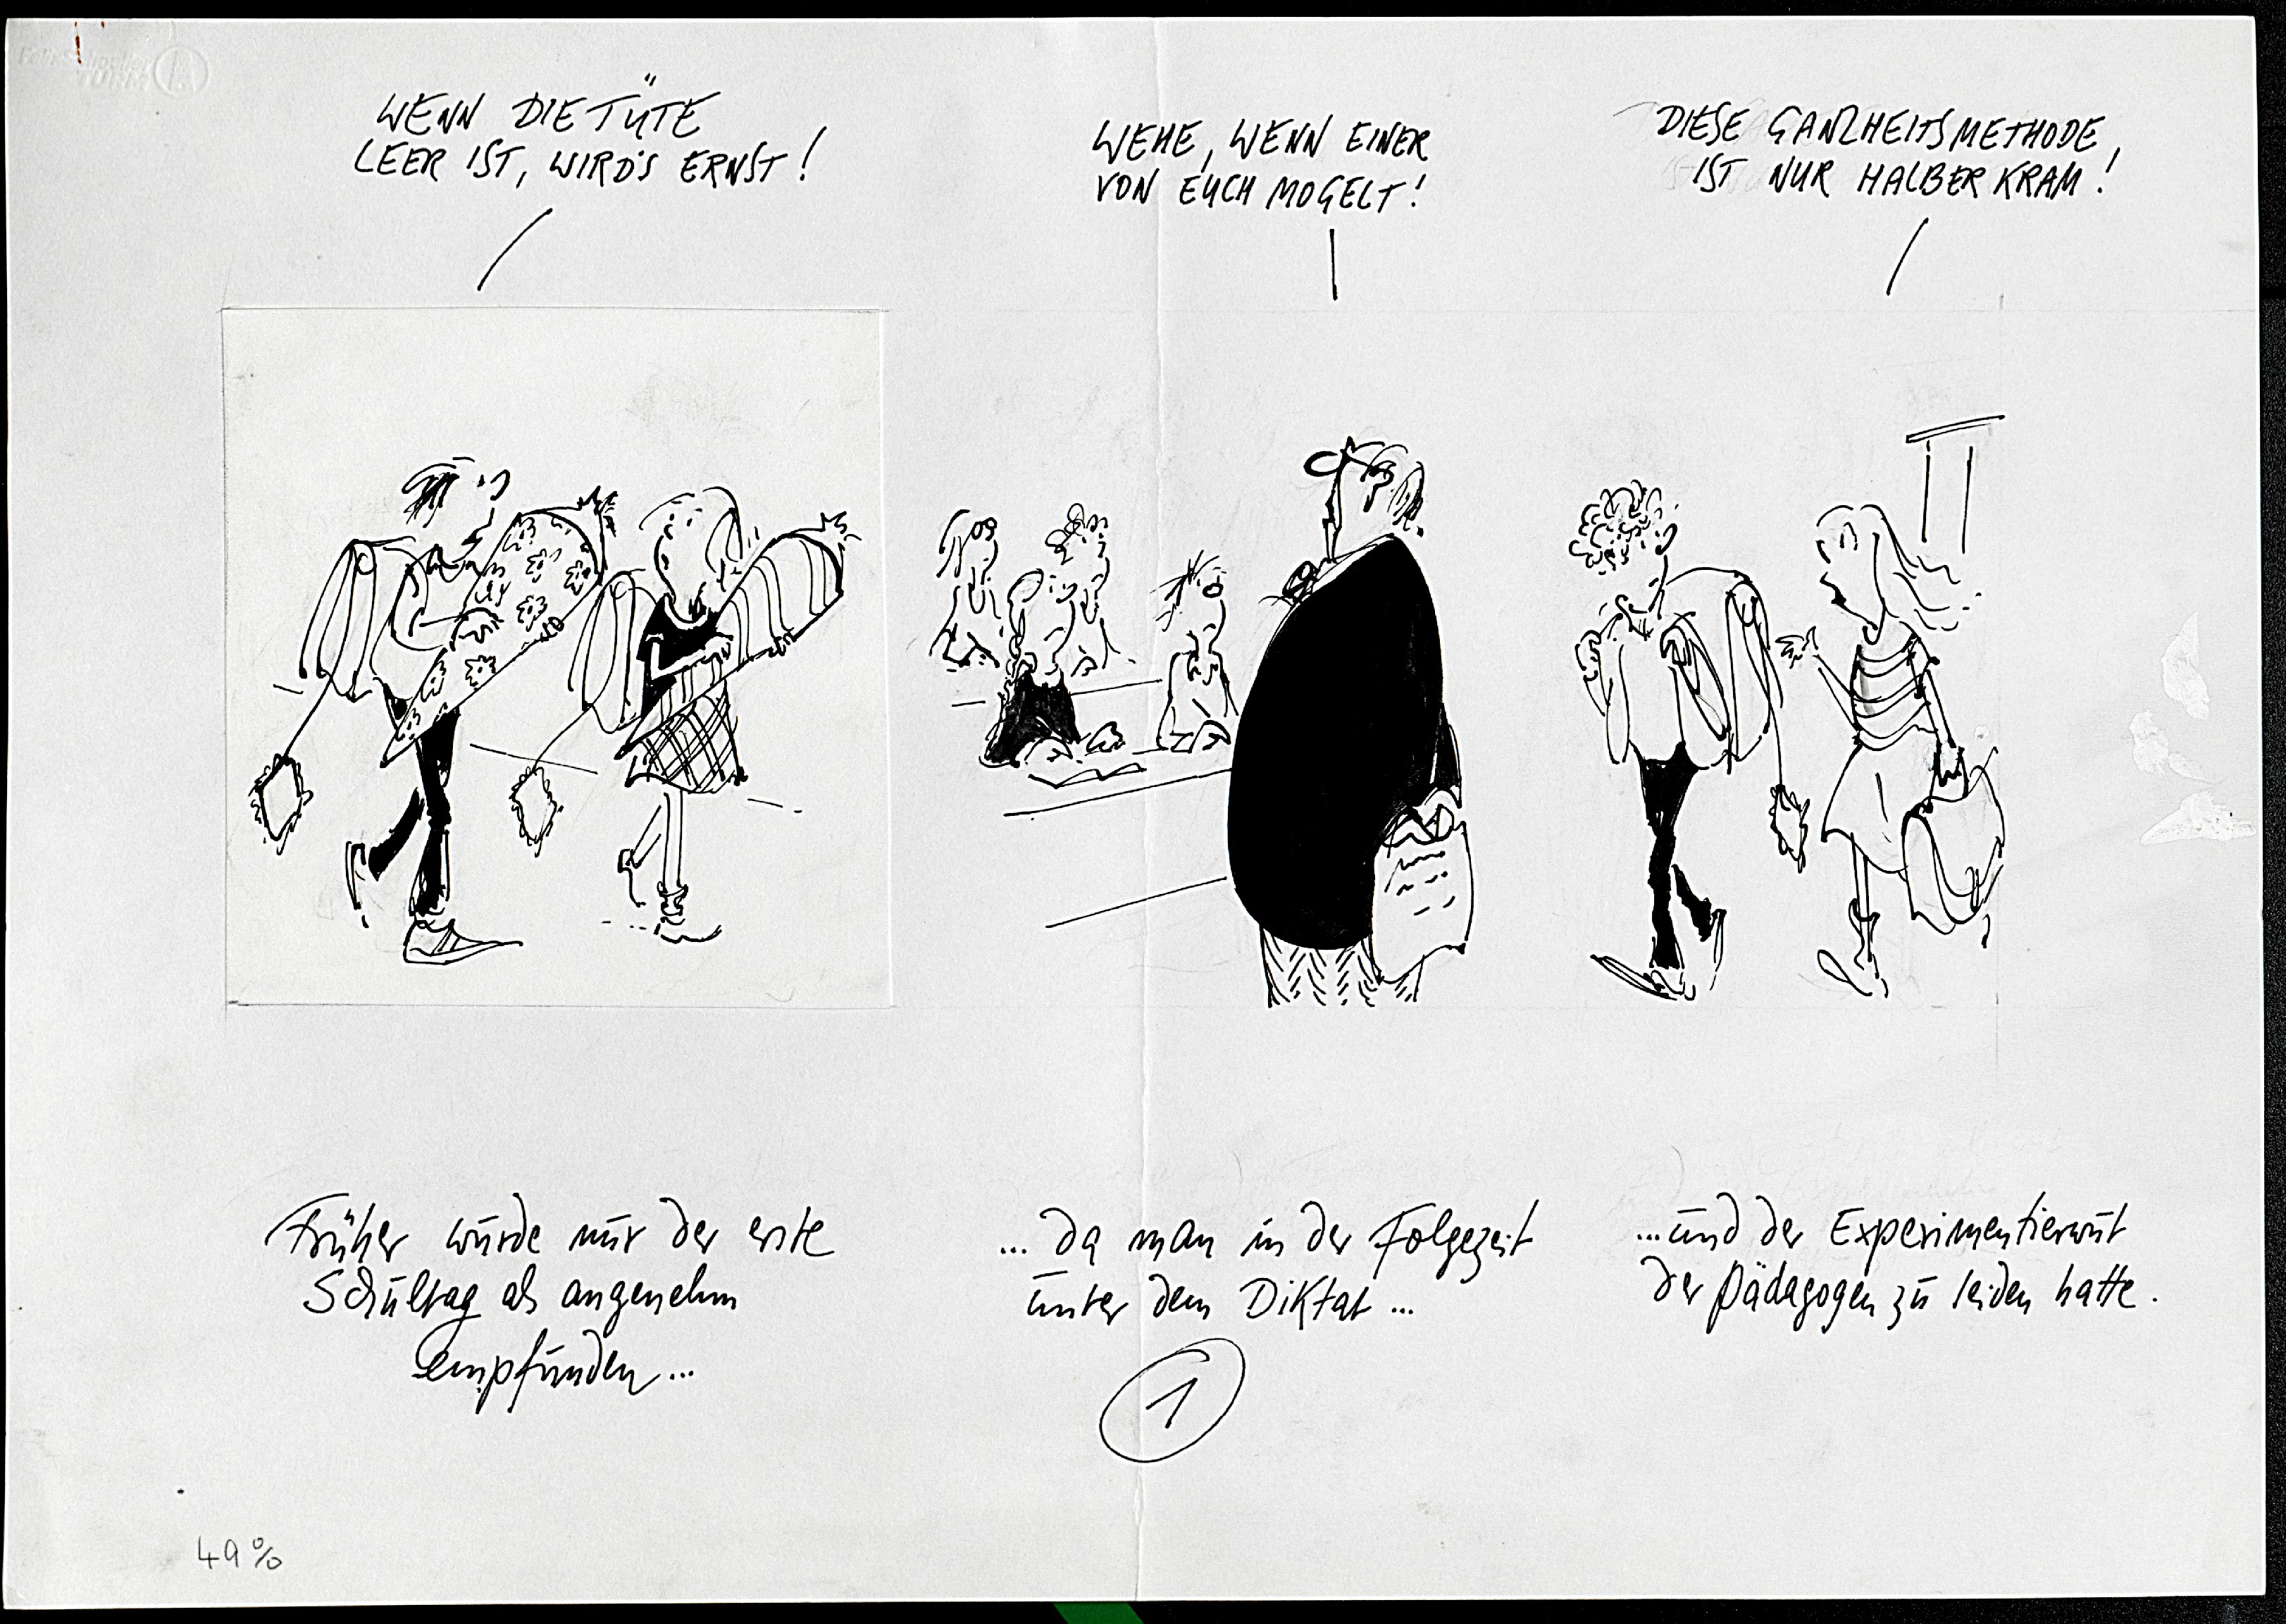 WENN DIE TÜTE
LEER IST, WIRD'S ERNST!
WEHE, WENN EINER
VON EUCH MOGELT!
DIESE GANZHEITSMETHODE,
IST NUR HALBER KRAM!
Früher wurde nur der erste
Schultag als angenehm
empfunden...
... da man in der Folgezeit
unter dem Diktat ...
...und der Experimentierwut
der Pädagogen zu leiden hatte.
1
49%